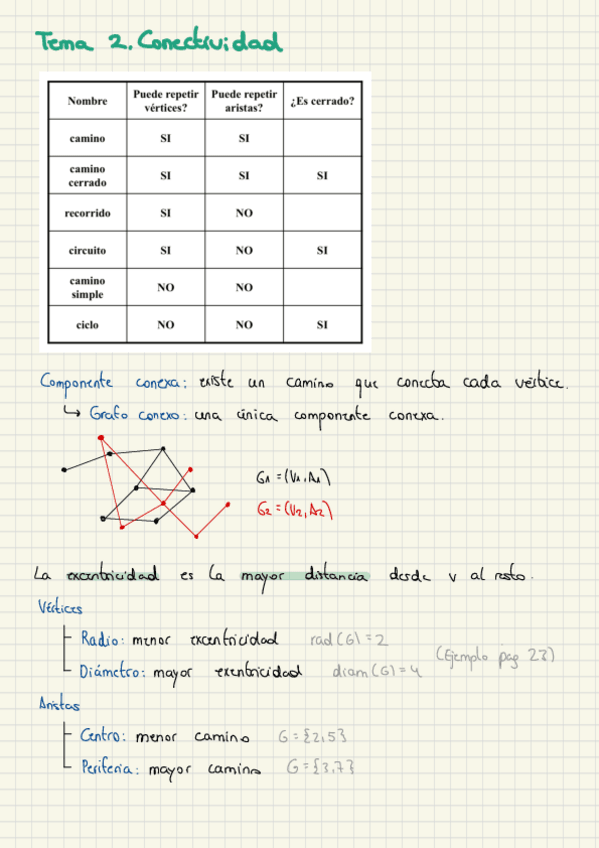 Tema 2. Conectividad
Nombre | Puede repetir vértices? | Puede repetir aristas? | ¿Es cerrado?
camino | SI | SI |
camino cerrado | SI | SI | SI
recorrido | SI | NO |
circuito | SI | NO | SI
camino simple | NO | NO |
ciclo | NO | NO | SI
Componente conexa: existe un camino que conecta cada vértice.
↳ Grafo conexo: una única componente conexa.
G₁ = (V₁, A₁)
G₂ = (V₂, A₂)
La excentricidad es la mayor distancia desde v al resto.
Vértices
Radio: menor excentricidad rad(G) = 2
(Ejemplo pag 23)
Diámetro: mayor excentricidad diam(G) = 4
Aristas
Centro: menor camino G = {2,5}
Periferia: mayor camino G = {3,7}